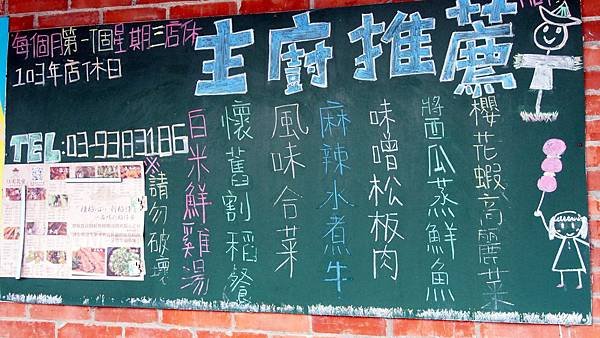 主廚推薦
櫻花蝦高麗菜
醬西瓜蒸鮮魚
味噌松板肉
麻辣水煮牛
風味合菜
懷舊割稻餐
白米鮮雞湯
每個月第一個星期三店休
103年店休日
TEL:03-9383186
※請勿破壞